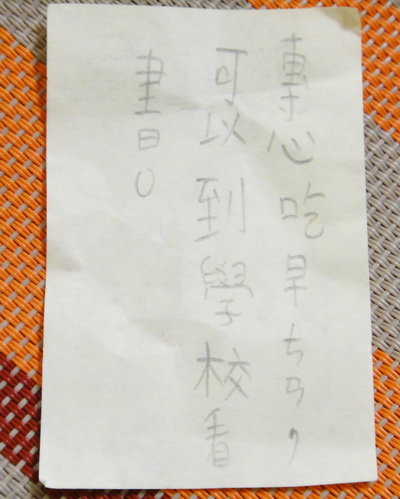 專心吃早ㄘㄢ，
可以到學校看
書。